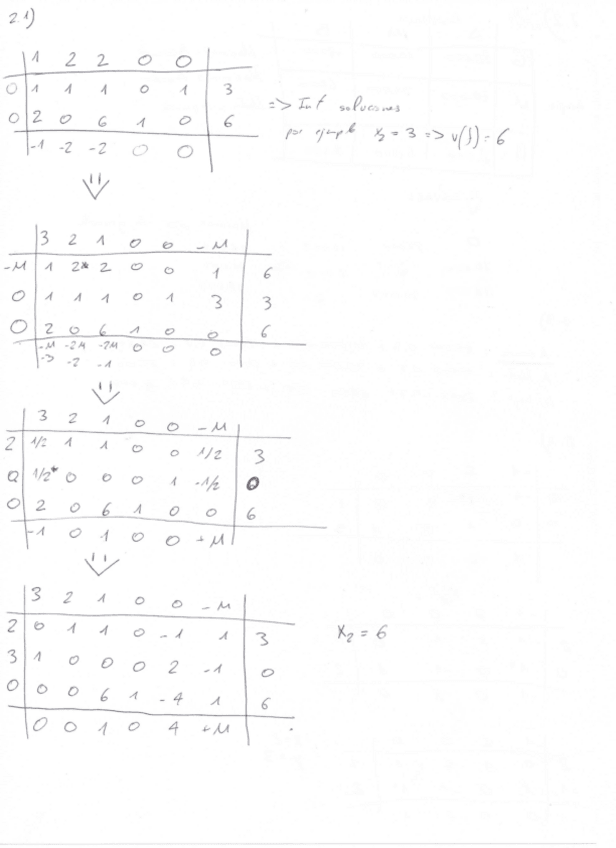 2.1)
1 2 2 0 0
0 1 1 1 0 1 3
0 2 0 6 1 0 6
-1 -2 -2 0 0
=> Inf soluciones
por ejemplo x₂ = 3 => v(f) = 6
3 2 1 0 0 -M
-M 1 2* 2 0 0 1 6
0 1 1 1 0 1 3 3
0 2 0 6 1 0 0 6
-M -2M -2M 0 0 0
-3 -2 -1
3 2 1 0 0 -M
2 1/2 1 1 0 0 1/2 3
0 1/2* 0 0 0 1 -1/2 0
0 2 0 6 1 0 0 6
-1 0 1 0 0 +M
3 2 1 0 0 -M
2 0 1 1 0 -1 1 3
3 1 0 0 0 2 -1 0
0 0 0 6 1 -4 1 6
0 0 1 0 4 +M
x₂ = 6